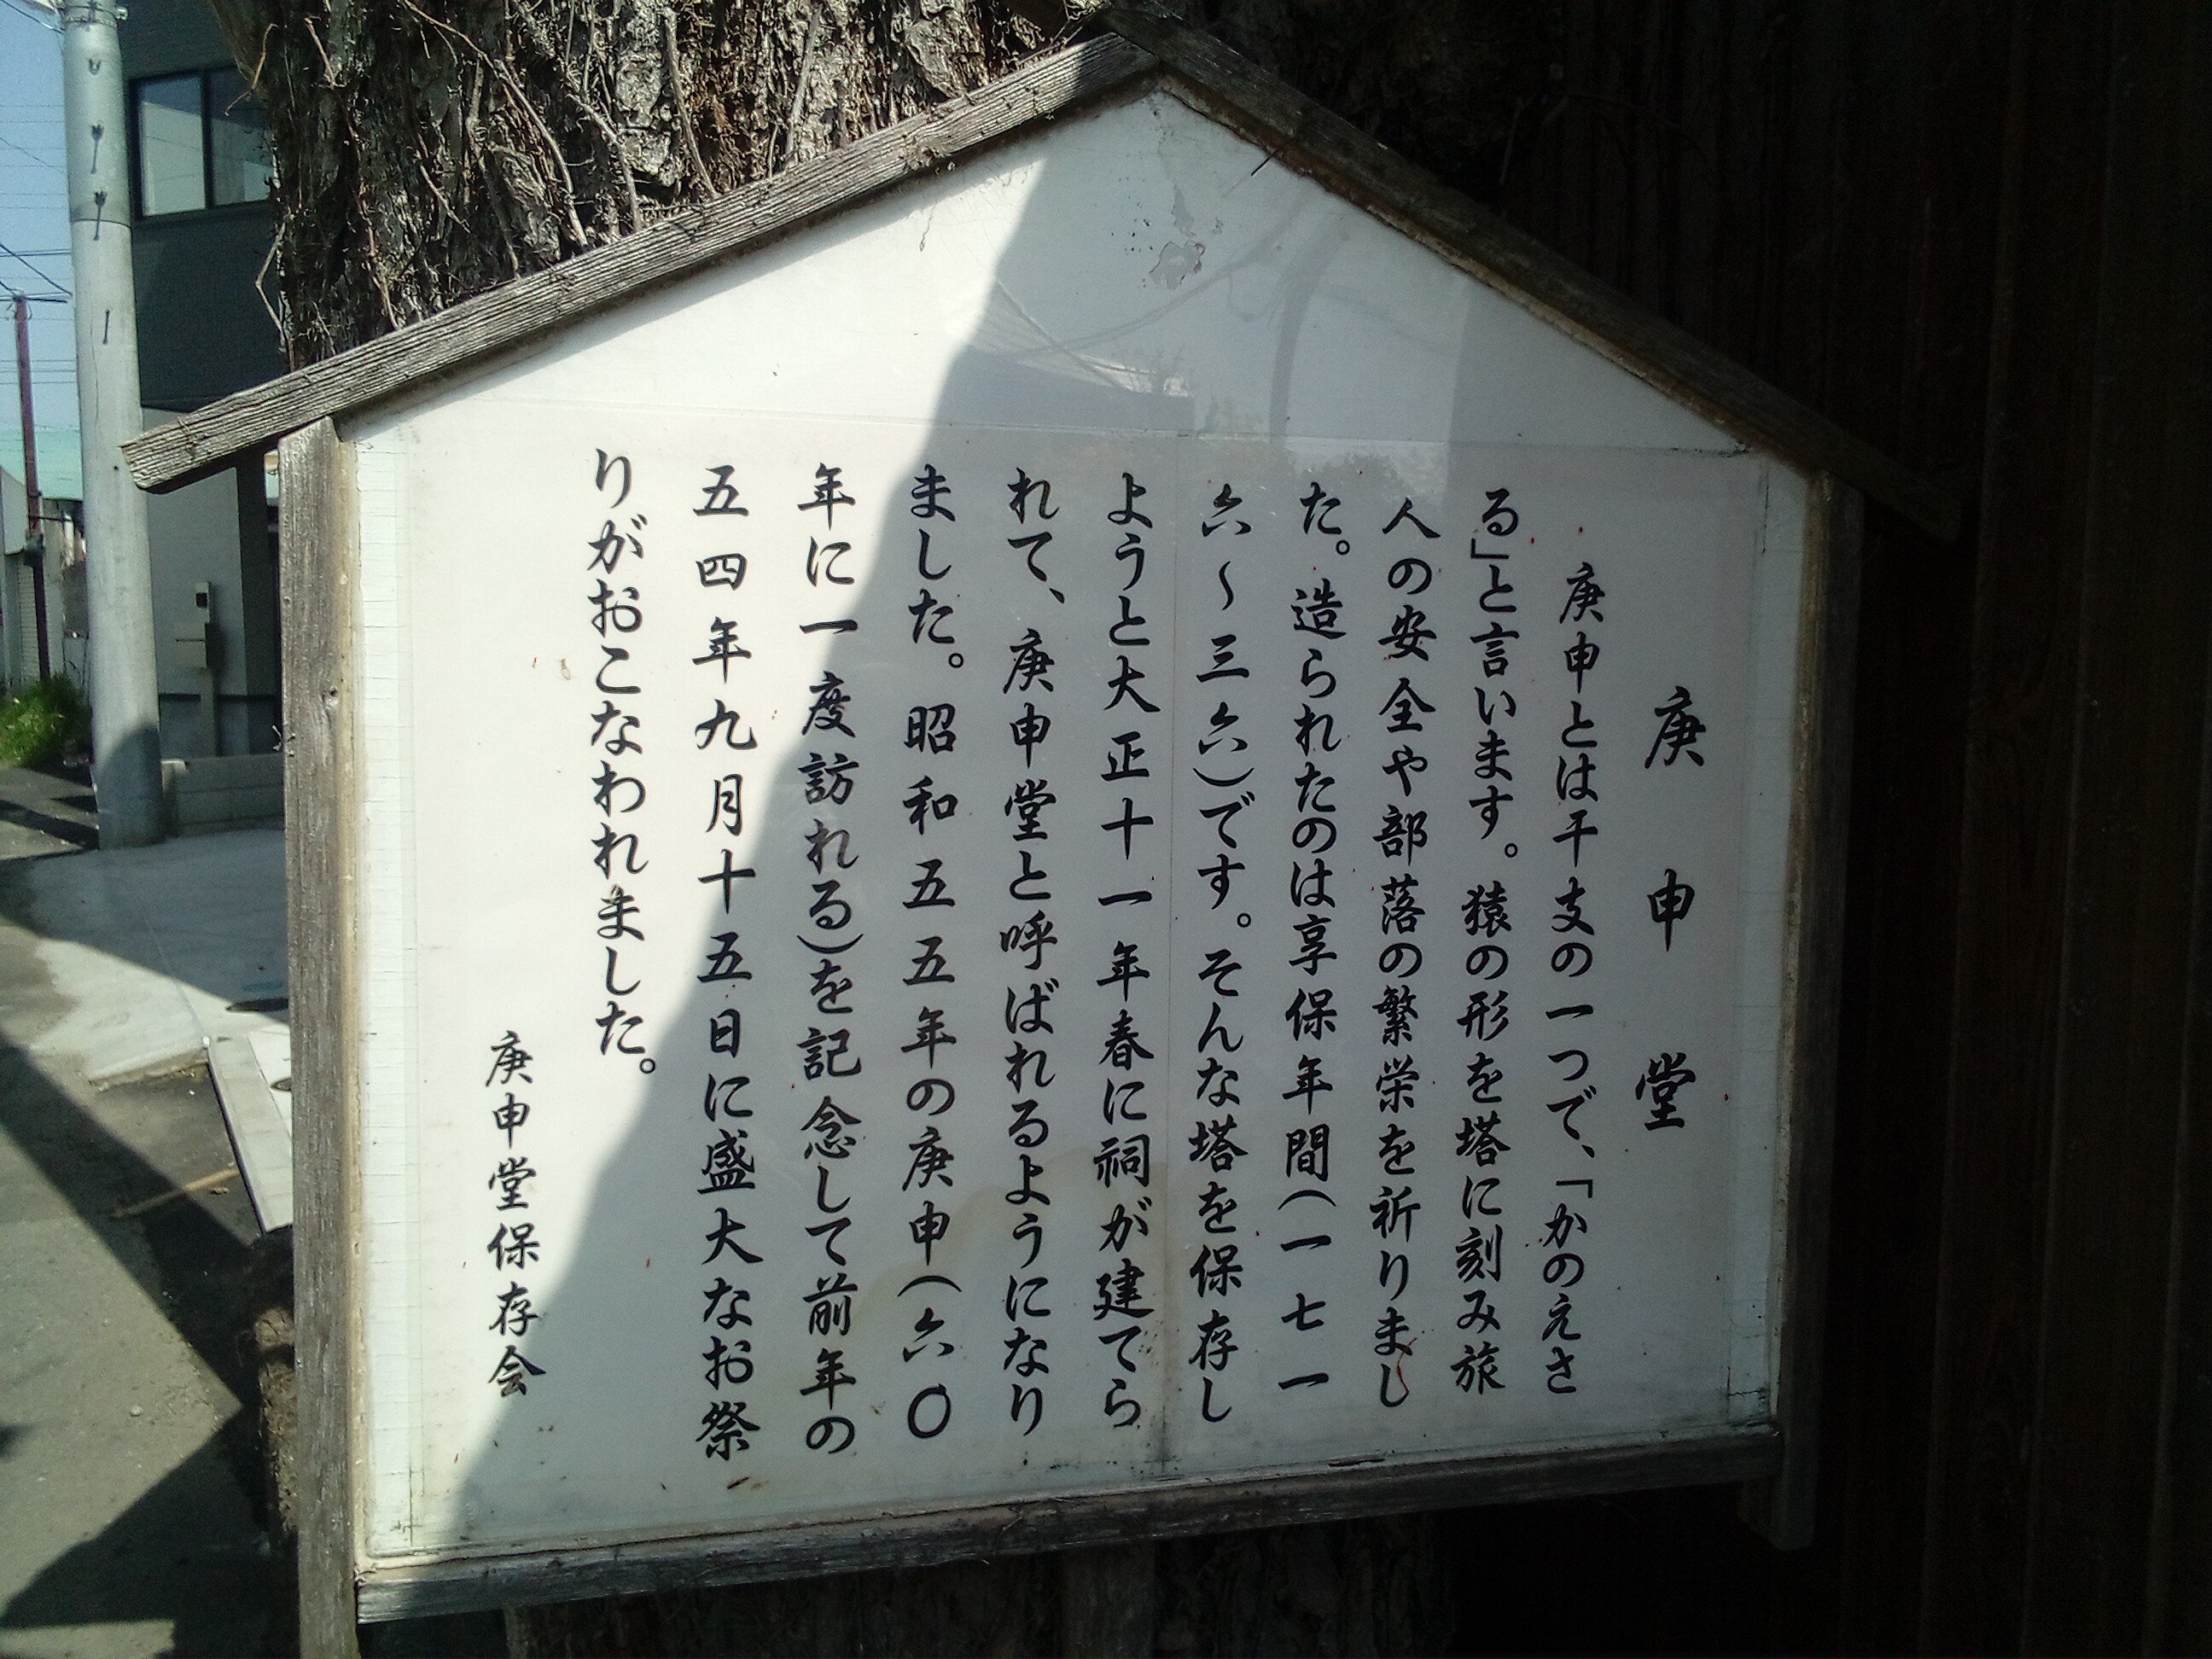 庚申堂
庚申とは干支の一つで、「かのえさ
る」と言います。猿の形を塔に刻み旅
人の安全や部落の繁栄を祈りまし
た。造られたのは享保年間(一七一
六~三六)です。そんな塔を保存し
ようと大正十一年春に祠が建てら
れて、庚申堂と呼ばれるようになり
ました。昭和五五年の庚申(六〇
年に一度訪れる)を記念して前年の
五四年九月十五日に盛大なお祭
りがおこなわれました。
庚申堂保存会